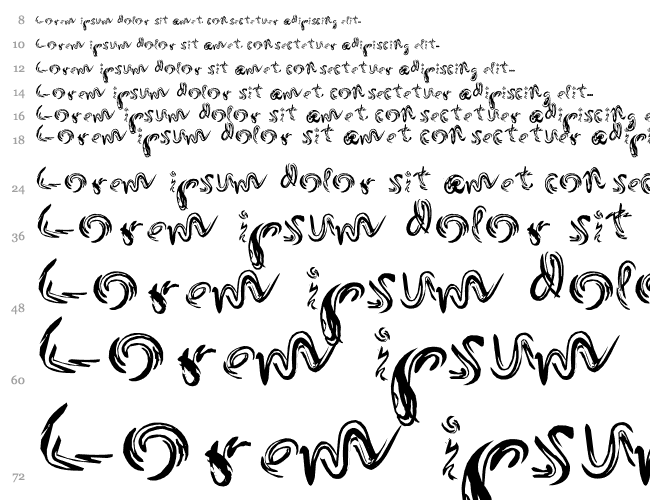 8 Lorem ipsum dolor sit amet consectetuer adipiscing elit.
10 Lorem ipsum dolor sit amet consectetuer adipiscing elit.
12 Lorem ipsum dolor sit amet consectetuer adipiscing elit.
14 Lorem ipsum dolor sit amet consectetuer adipiscing elit.
16 Lorem ipsum dolor sit amet consectetuer adipiscing e
18 Lorem ipsum dolor sit amet consectetuer adip
24 Lorem ipsum dolor sit amet consec
36 Lorem ipsum dolor sit
48 Lorem ipsum dolo
60 Lorem ipsum
72 Lorem ipsum